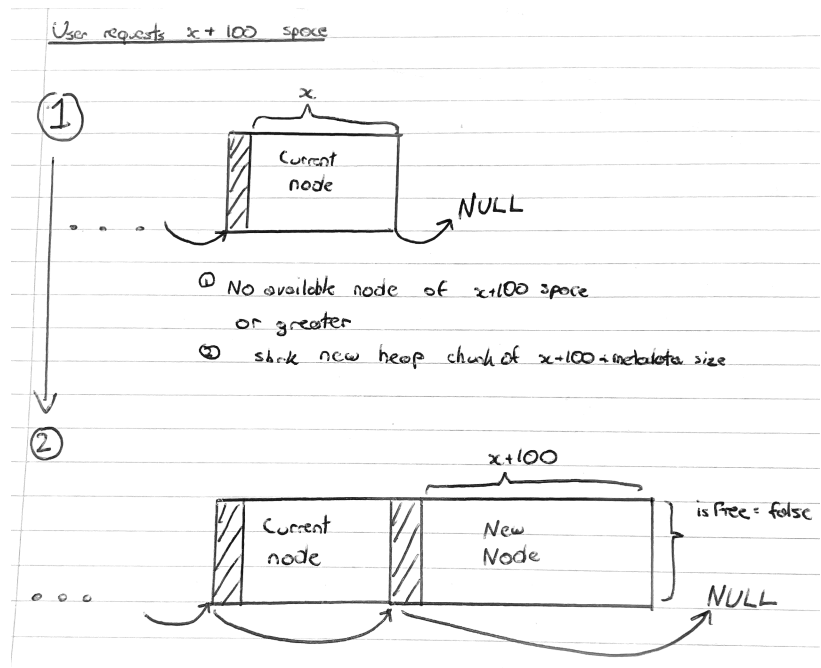 User requests x + 100 space
1
x
Current
node
. . .
NULL
① No available node of x+100 space
or greater
② sbrk new heap chunk of x+100 + metadata size
2
x+100
Current
node
New
Node
isFree = false
NULL